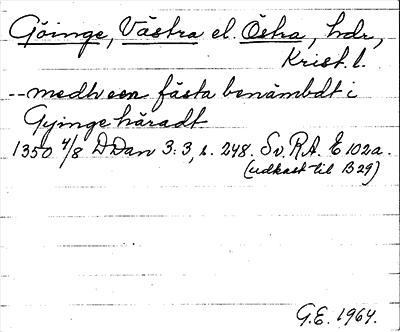 Göinge, Västra el. Östra, hdr,
Krist. l.
-- medh een fästa benämbdt i
Gyinge häradt
1350 4/8 DDan 3:3, s. 248. Sv. RA. E 102a.
(udkast til B29)
G.E. 1964.